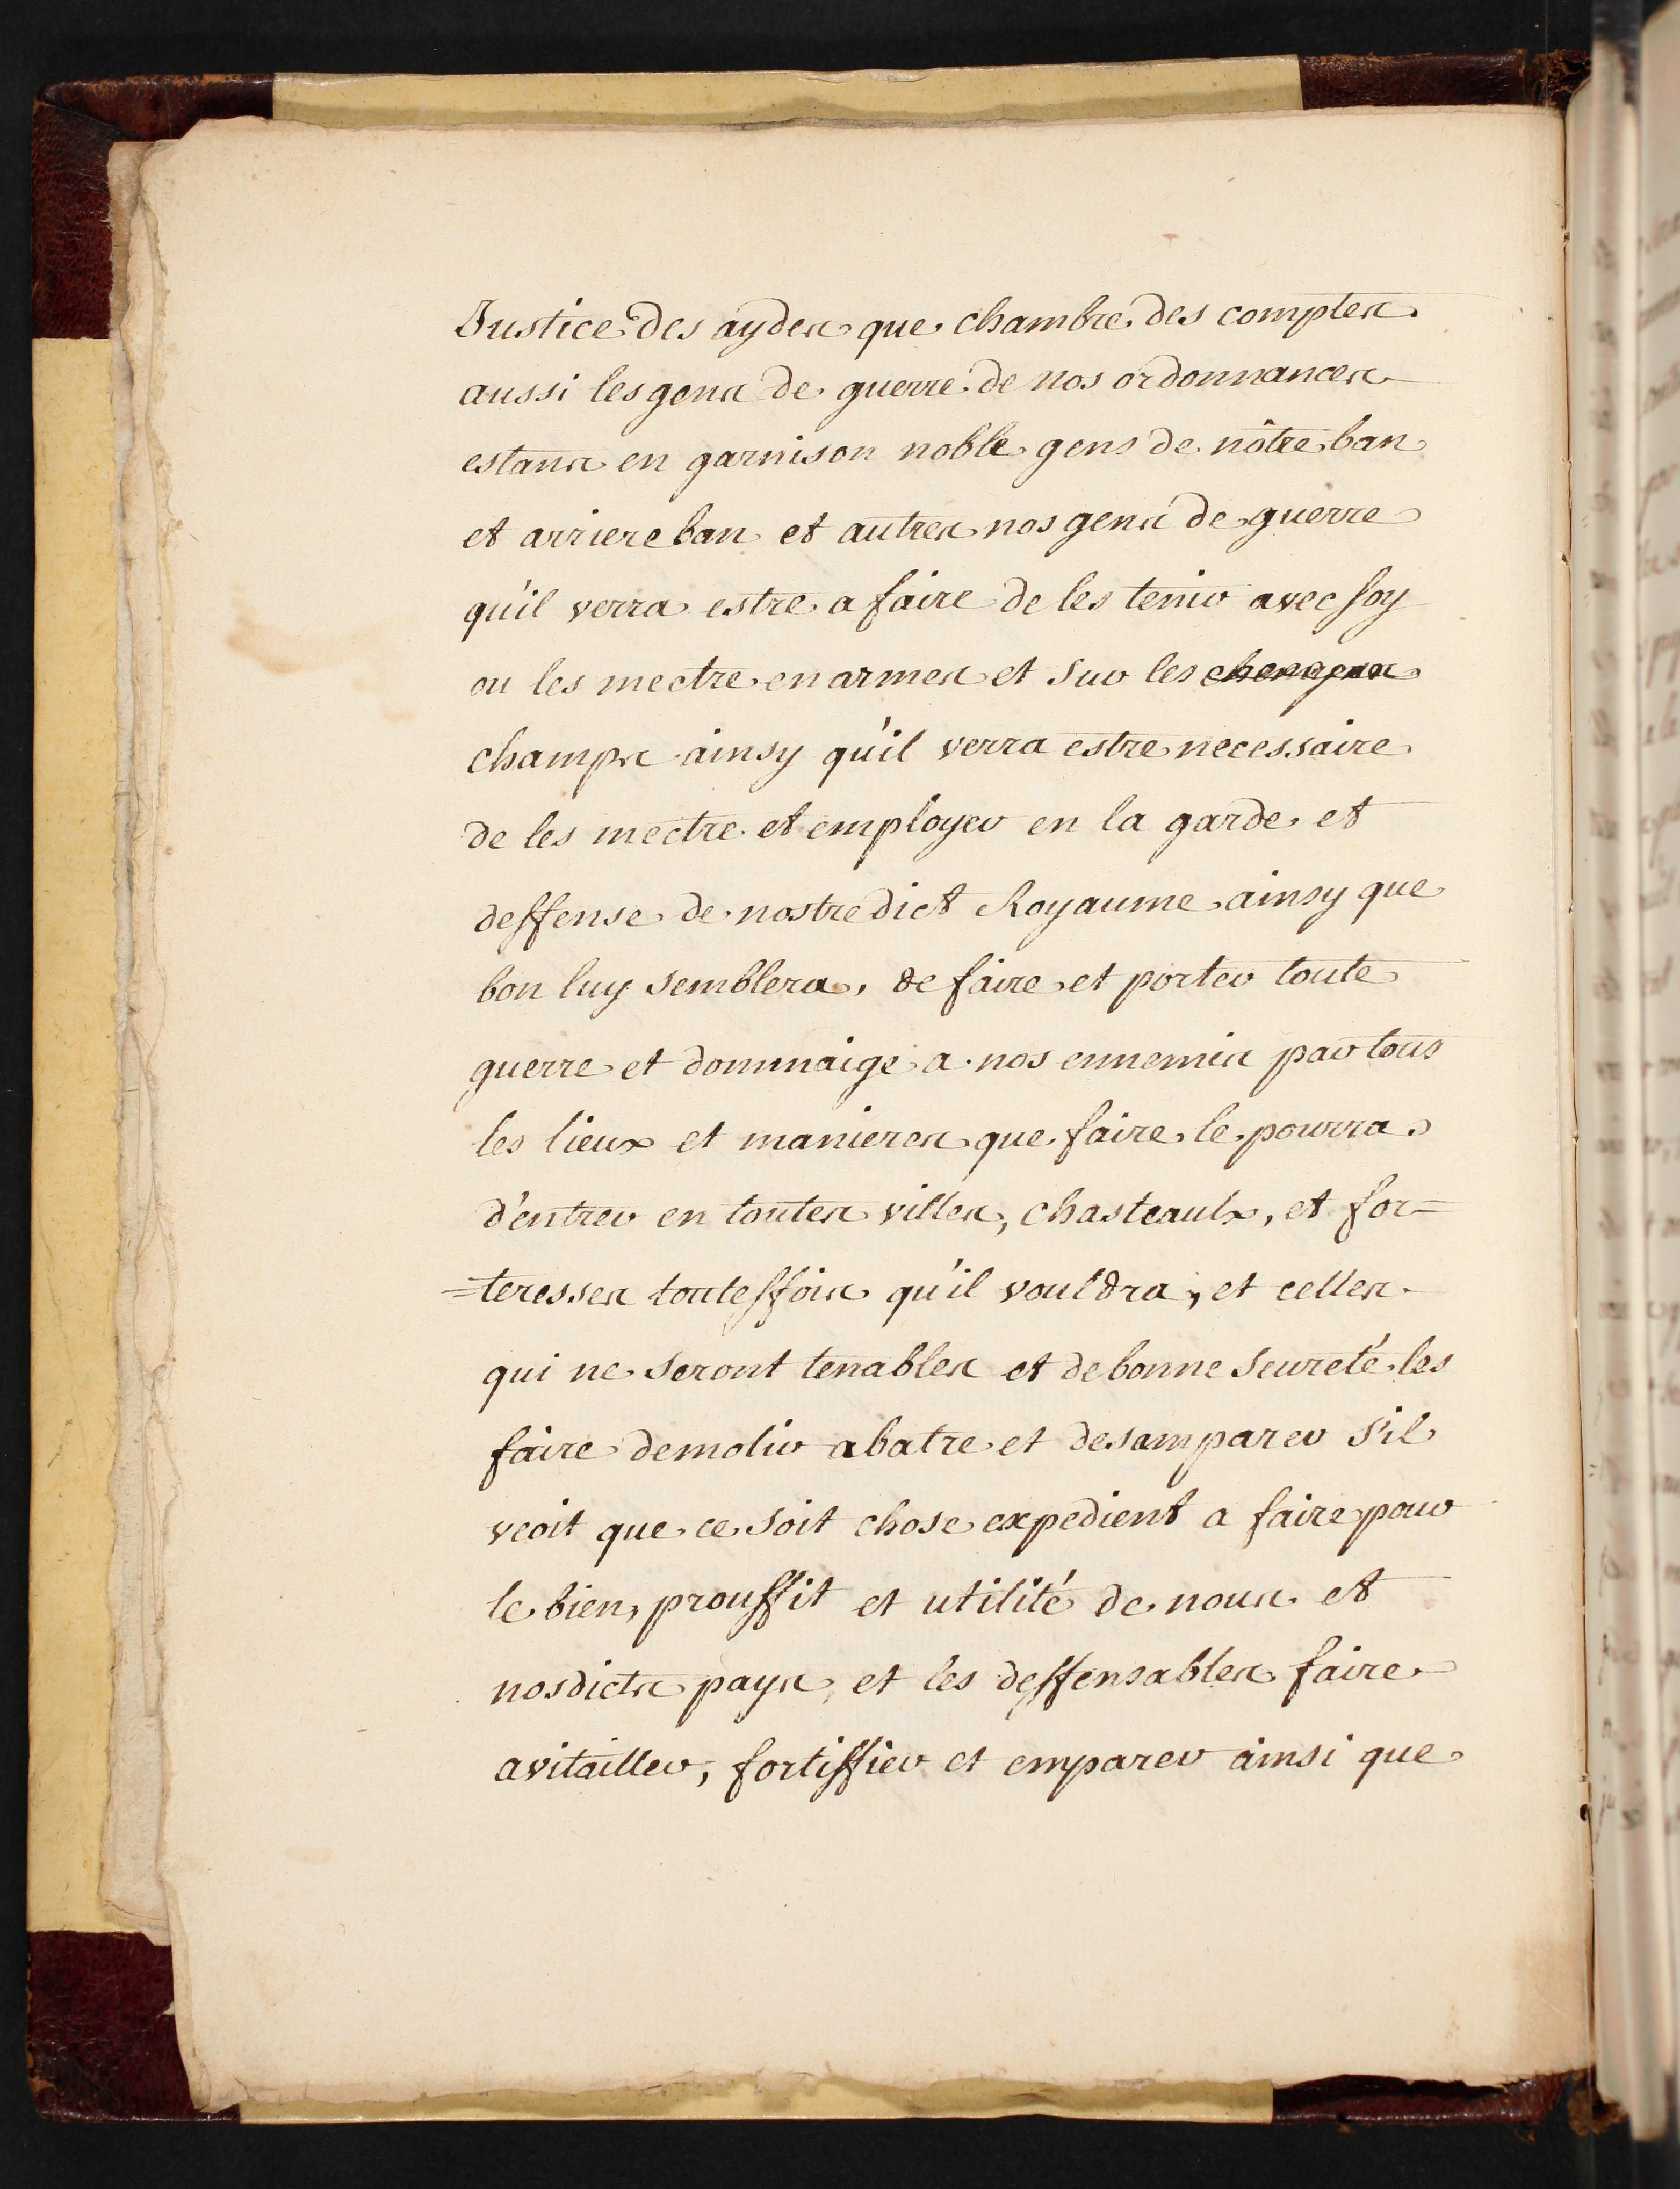 Justice des aydes que chambre des comptes
aussi les gens de guerre de nos ordonnances
estans en garnison noble gens de nôtre ban
et arriere ban et autres nos gens de guerre
qu'il verra estre a faire de les tenir avec soy
ou les mectre en armes et sur les
champs ainsy qu'il verra estre necessaire
de les mectre et employer en la garde et
deffense de nostredict Royaume ainsy que
bon luy semblera, de faire et porter toute
guerre et dommaige a nos ennemis par tous
les lieux et manieres que faire le pourra
d'entrer en toutes villes, chasteaulx, et for=
=teresses toutesfois qu'il vouldra, et celles
qui ne seront tenables et de bonne seureté les
faire demolir abatre et desamparer s'il
veoit que ce soit chose expedient a faire pour
le bien, prouffit et utilité de nous et
nosdicts pays, et les deffensables faire
avitailler, fortiffier et emparer ainsi que